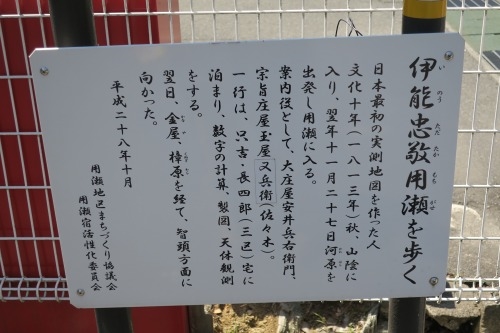 伊能忠敬用瀬を歩く
いのうただたかもちがせ
日本最初の実測地図を作った人
文化十年(一八一三年)秋、山陰に
入り、翌年十一月二十七日河原を
出発し用瀬に入る。
案内役として、大庄屋安井兵右衛門、
宗旨庄屋玉屋又兵衛(佐々木)。
一行は、只吉・長四郎(三区)宅に
泊まり、数字の計算、製図、天体観測
をする。
翌日、金屋、樟原を経て、智頭方面に
向かった。
平成二十八年十月
用瀬地区まちづくり協議会
用瀬宿活性化委員会